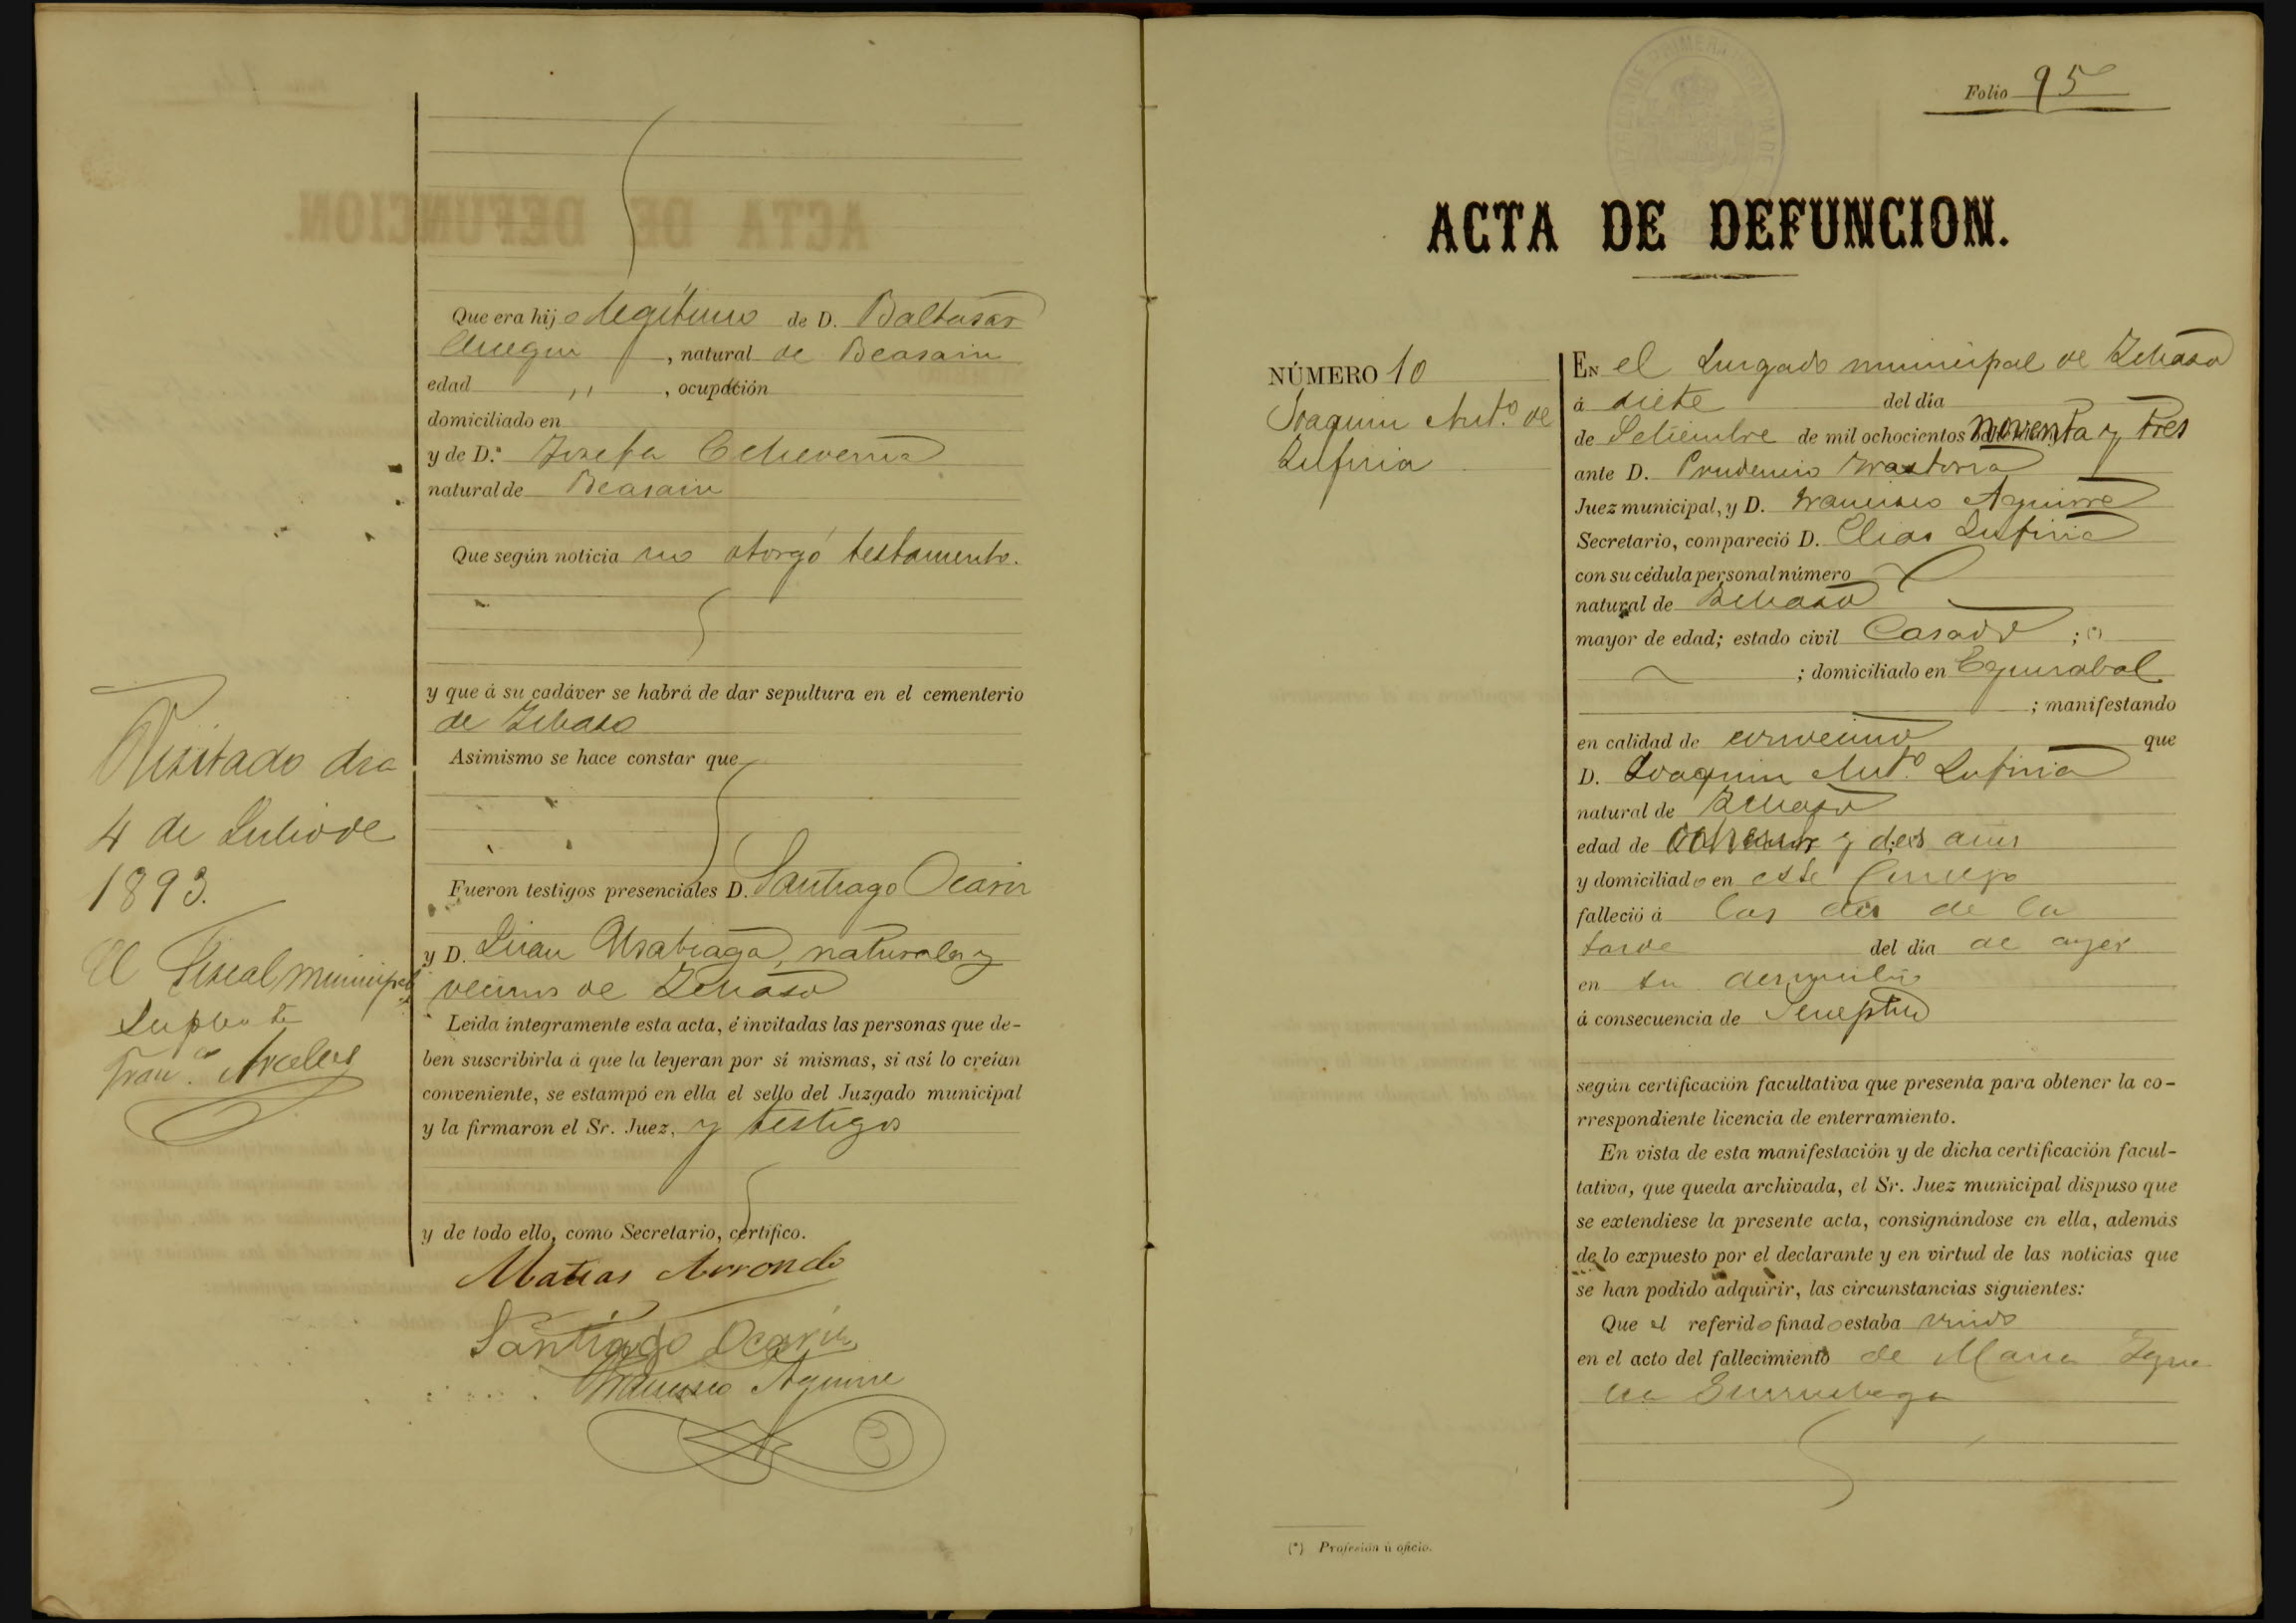 Que era hijo legitimo de D. Baltasar
, natural de Beasain
edad ,, , ocupación
domiciliado en
y de D.ª Josefa Echeverria
natural de Beasain
Que según noticia no otorgó testamento.
y que á su cadáver se habrá de dar sepultura en el cementerio
de Ichaso
Asimismo se hace constar que
Fueron testigos presenciales D. Santiago Ocariz
y D. Juan Usabiaga, naturales y
vecinos de Ichaso
Leida íntegramente esta acta, é invitadas las personas que de-
ben suscribirla á que la leyeran por sí mismas, si así lo creían
conveniente, se estampó en ella el sello del Juzgado municipal
y la firmaron el Sr. Juez, y testigos
y de todo ello, como Secretario, certifico.
Matias Arrondo
Santiago Ocariz
Francisco Aguirre
Visitado dia
4 de Julio de
1893.
El Fiscal municipal
Suplente
Fran.co Arcelus
Folio 95
ACTA DE DEFUNCION.
NÚMERO 10
Joaquin Ant.o de
Lufiria
EN el Juzgado municipal de Ichaso
á siete del dia
de Setiembre de mil ochocientos noventa y tres
ante D. Prudencio Irastorza
Juez municipal, y D. Francisco Aguirre
Secretario, compareció D. Elias Lufiria
con su cédula personal número
natural de Ichaso
mayor de edad; estado civil Casado ; (*)
; domiciliado en
; manifestando
en calidad de convecino que
D. Joaquin Ant.o Lufiria
natural de Ichaso
edad de ochenta y dos años
y domiciliado en este
falleció á las dos de la
tarde del dia de ayer
en su domicilio
á consecuencia de
según certificación facultativa que presenta para obtener la co-
rrespondiente licencia de enterramiento.
En vista de esta manifestación y de dicha certificación facul-
tativa, que queda archivada, el Sr. Juez municipal dispuso que
se extendiese la presente acta, consignándose en ella, además
de lo expuesto por el declarante y en virtud de las noticias que
se han podido adquirir, las circunstancias siguientes:
Que el referido finado estaba viudo
en el acto del fallecimiento de Maria Igna
cia
(*) Profesión ú oficio.